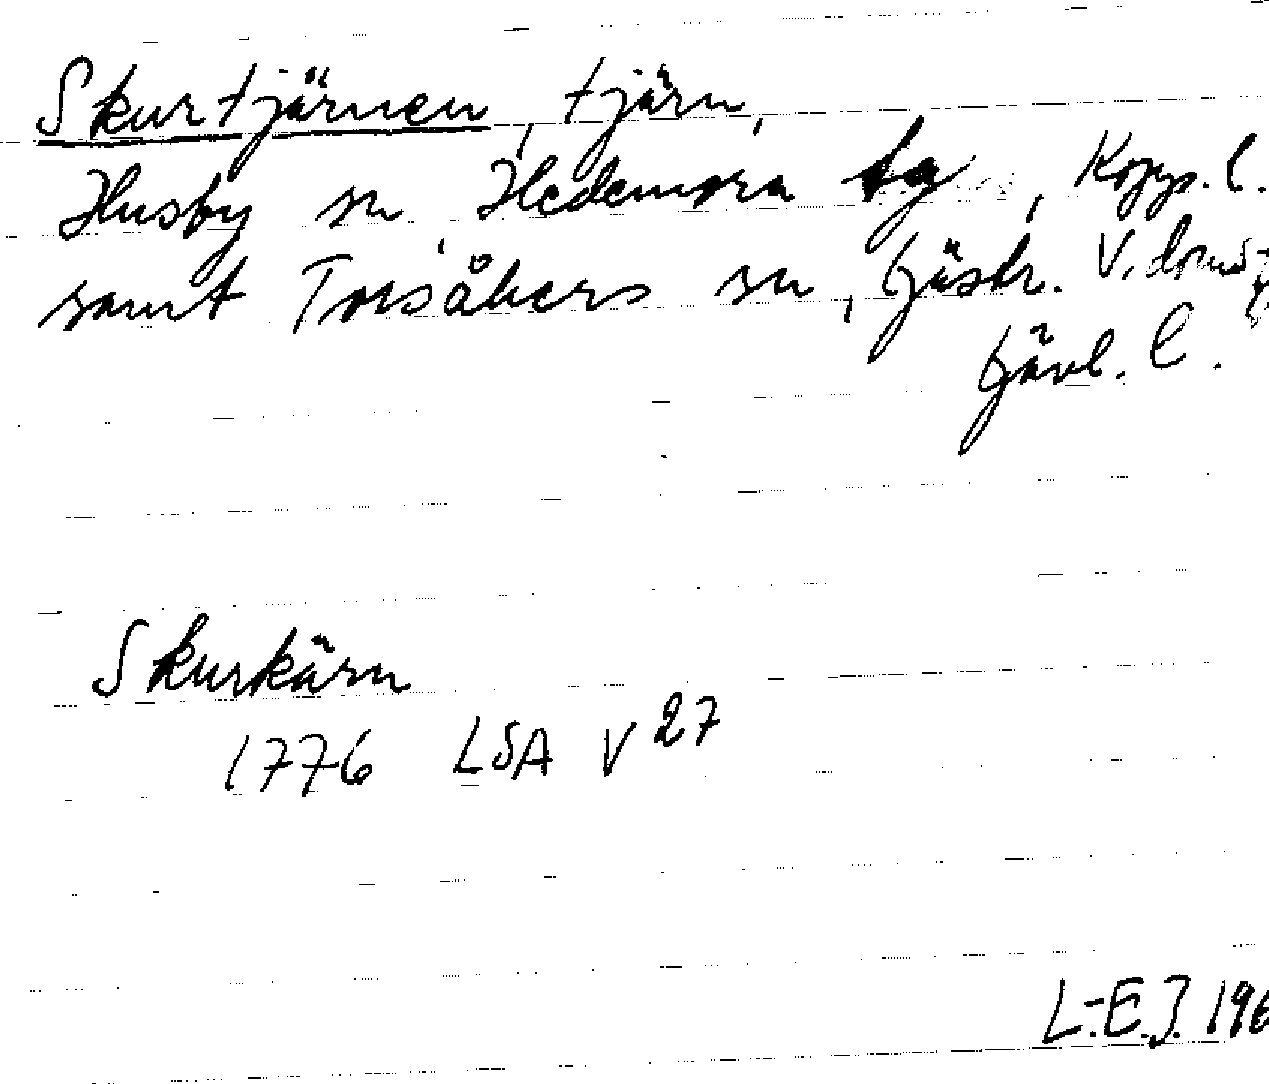 Skurtjärnen, tjärn,
Husby sn, Hedemora tg, Kopp. l.
samt Torsåkers sn, Gästr. V. doms
Gävl. l.
Skurkärn
1776 LSA V 27
L.-E. J. 196